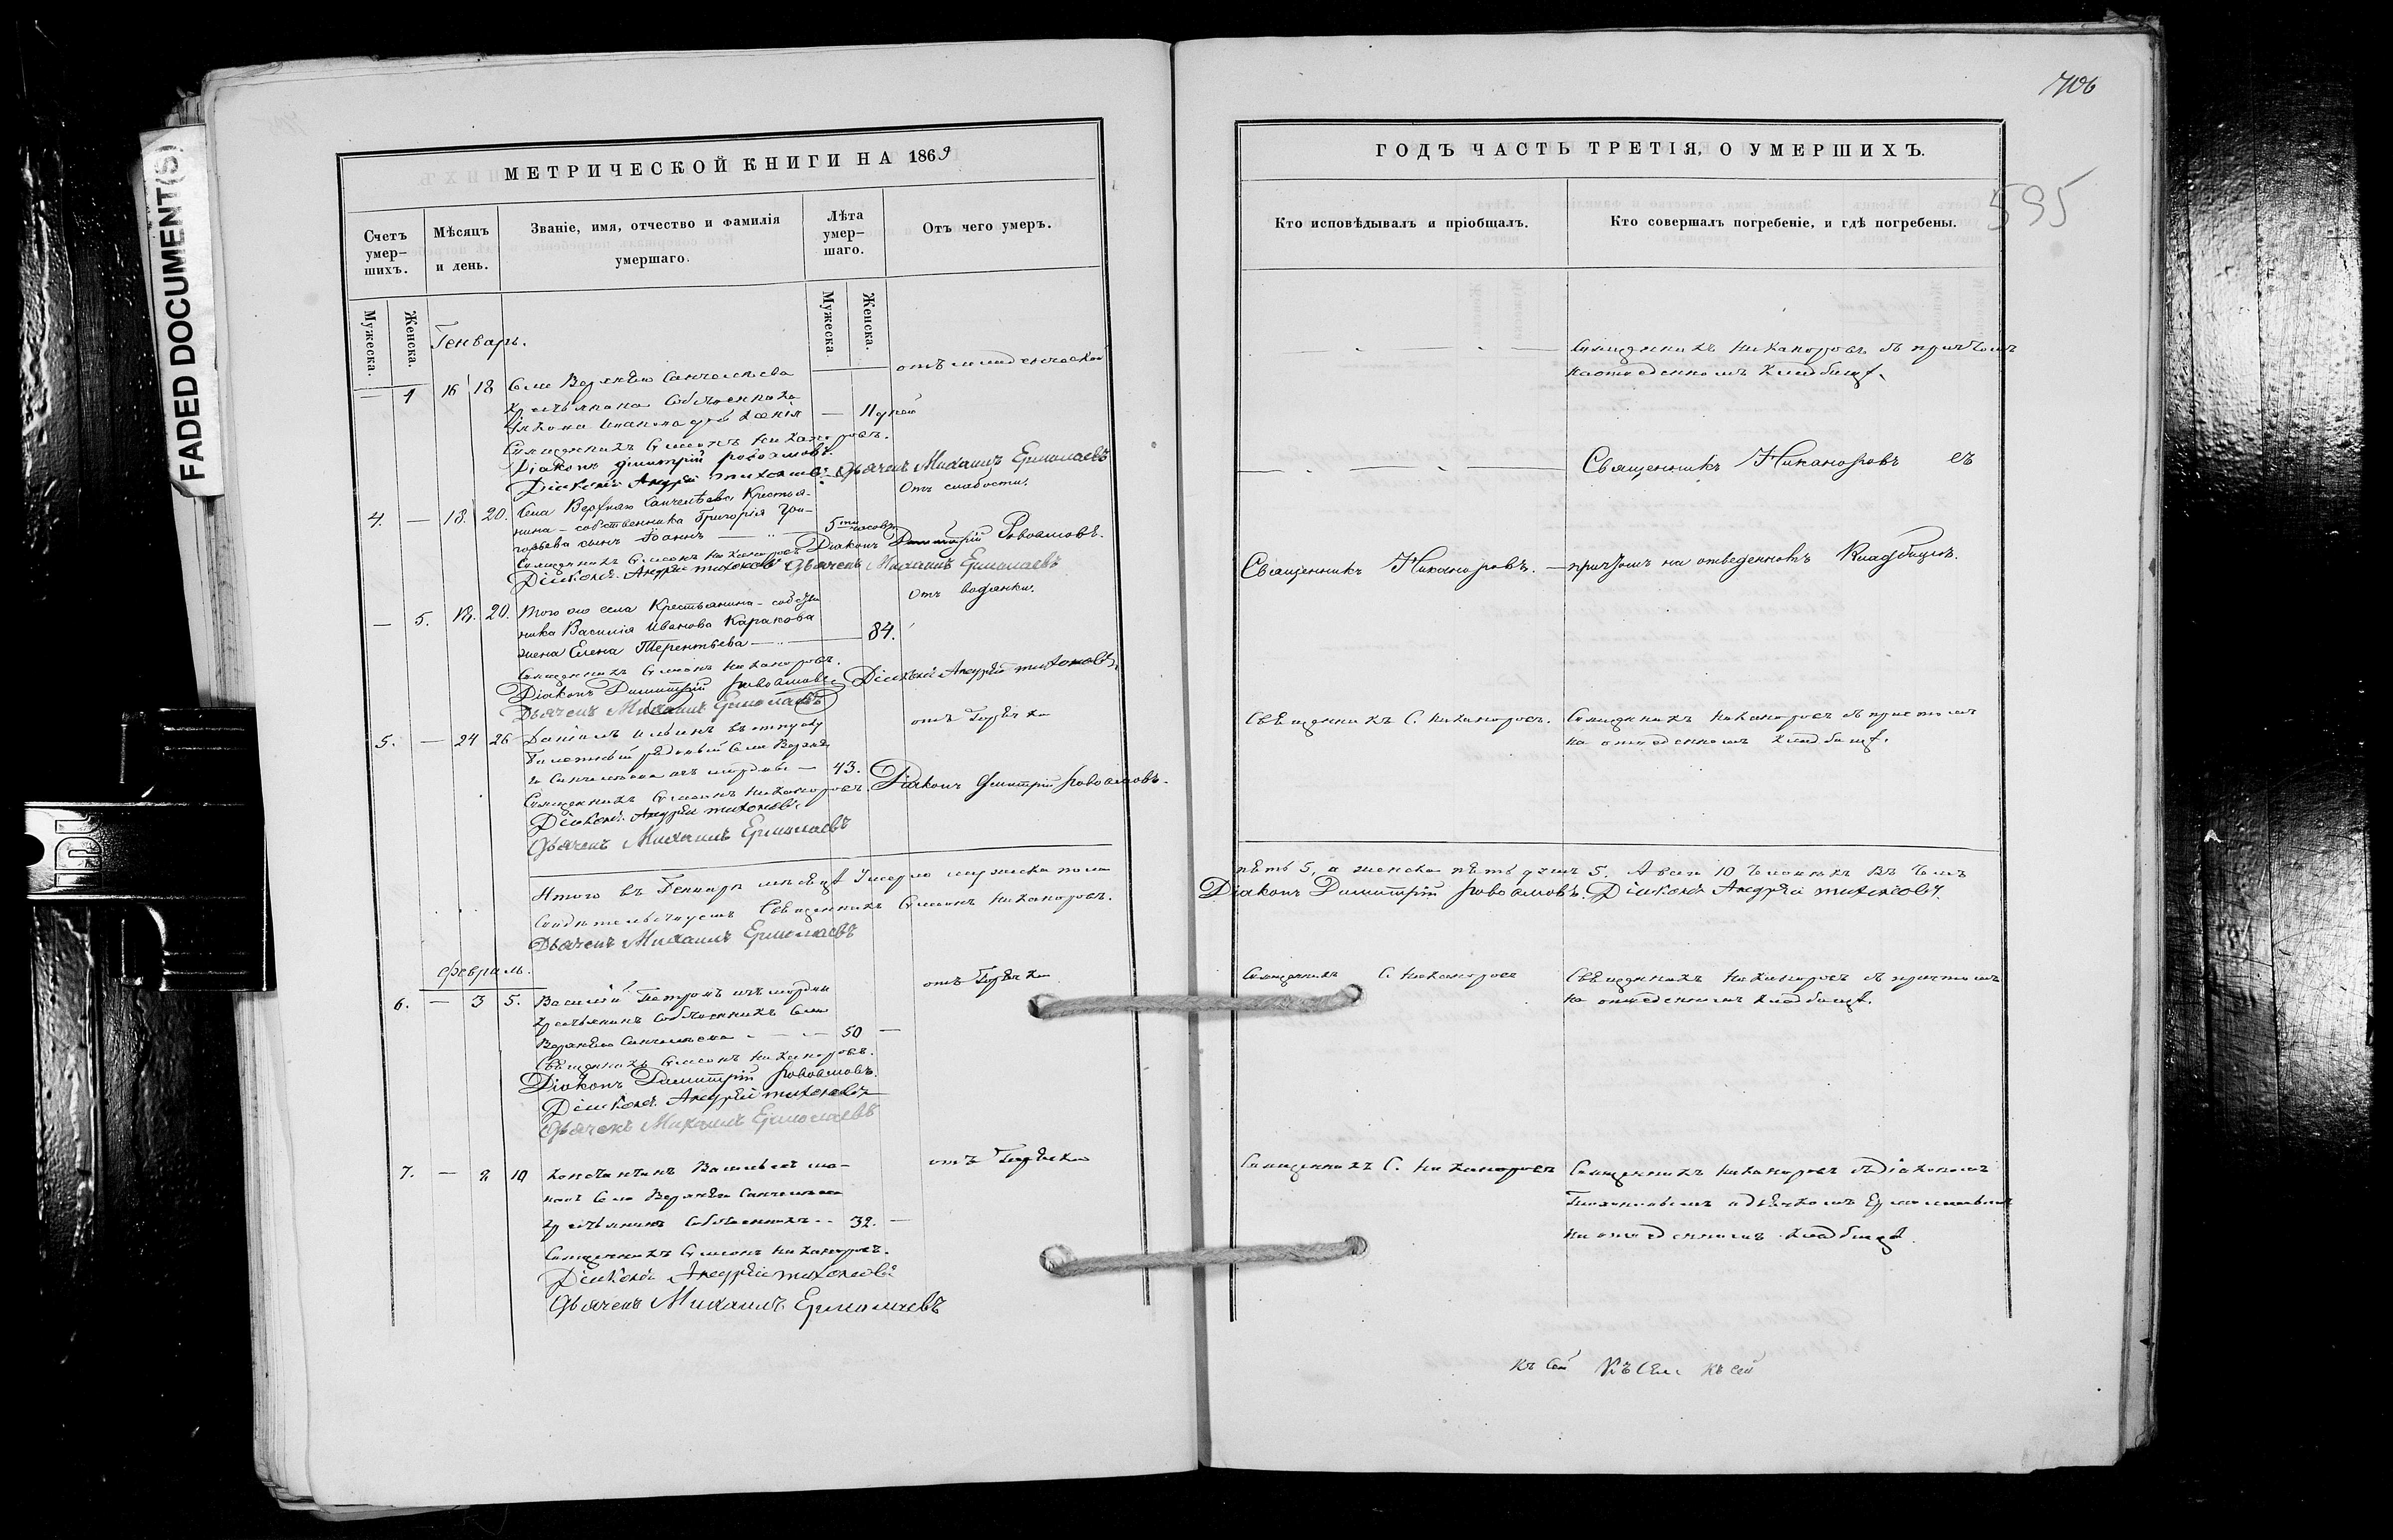 FADED DOCUMENT(S)
706
595
МЕТРИЧЕСКОЙ КНИГИ НА 1869
Счетъ умер-шихъ.
Мѣсяцъ и день.
Званіе, имя, отчество и фамилія умершаго.
Лѣта умер-шаго.
Отъ чего умеръ.
Мужеска.
Женска.
Мужеска.
Женска.
Генварь.
— 1 16 18 Села Верхняго Санчелеева
отъ младенческой
крестьянина собственника
— 11 дней
Священникъ Симеонъ Никаноровъ.
Діаконъ Димитрій Ровоамовъ.
Діаконъ Андрей Тихоновъ. Дьячекъ Михаилъ Ермолаевъ
Отъ слабости.
4. — 18. 20. Села Верхняго Санчелѣева Крестья-
нина-собственника Григорія Гри-
горьева сынъ Іоаннъ — 5ти часовъ
Священникъ Симеонъ Никаноровъ Діаконъ Димитрій Ровоамовъ.
Діаконъ Андрей Тихоновъ Дьячекъ Михаилъ Ермолаевъ
Отъ водянки.
— 5. 18. 20. Того же села Крестьянина-собстве
ника Василія Иванова Каракова
жена Елена Терентьева — 84.
Священникъ Симеонъ Никаноровъ.
Діаконъ Димитрій Ровоамовъ. Діаконъ Андрей Тихоновъ.
Дьячекъ Михаилъ Ермолаевъ
5. — 24 26 Даніилъ Ильинъ
отъ Горячки
билетный рядовый села Верхня
го Санчелеева изъ мордвы — 43.
Священникъ Симеонъ Никаноровъ. Діаконъ Димитрій Ровоамовъ.
Діаконъ Андрей Тихоновъ
Дьячекъ Михаилъ Ермолаевъ
Итого въ Генварѣ мѣсяцѣ умерло мужеска пола
Свидѣтельствуемъ Священникъ Симеонъ Никаноровъ.
Дьячекъ Михаилъ Ермолаевъ
Февраль.
6. — 3 5. Василій Петровъ изъ мордвы
отъ Горячки
крестьянинъ собственникъ села
Верхняго Санчелеева — 50 —
Священникъ Симеонъ Никаноровъ.
Діаконъ Димитрій Ровоамовъ.
Діаконъ Андрей Тихоновъ
Дьячекъ Михаилъ Ермолаевъ
7. — 8 10 Константинъ Васильевъ
отъ Горячки
села Верхняго Санчелеева
крестьянинъ собственникъ — 32. —
Священникъ Симеонъ Никаноровъ.
Діаконъ Андрей Тихоновъ
Дьячекъ Михаилъ Ермолаевъ
ГОДЪ ЧАСТЬ ТРЕТІЯ, О УМЕРШИХЪ.
Кто исповѣдывалъ и пріобщалъ.
Кто совершалъ погребеніе, и гдѣ погребены.
Священникъ Никаноровъ съ причтомъ
на отведенномъ кладбищѣ.
Священникъ Никаноровъ съ
Священникъ Никаноровъ. — причтомъ на отведенномъ Кладбищѣ.
Священникъ С. Никаноровъ. Священникъ Никаноровъ съ причтомъ
на отведенномъ кладбищѣ.
пять 5, а женска пять душъ 5. А всего 10 человѣкъ въ чемъ
Діаконъ Димитрій Ровоамовъ. Діаконъ Андрей Тихоновъ.
Священникъ С. Никаноровъ Священникъ Никаноровъ съ причтомъ
на отведенномъ кладбищѣ.
Священникъ С. Никаноровъ Священникъ Никаноровъ съ діакономъ
Тихоновымъ и дьячкомъ Ермолаевымъ
на отведенномъ кладбищѣ.
Къ сей Къ сей Къ сей